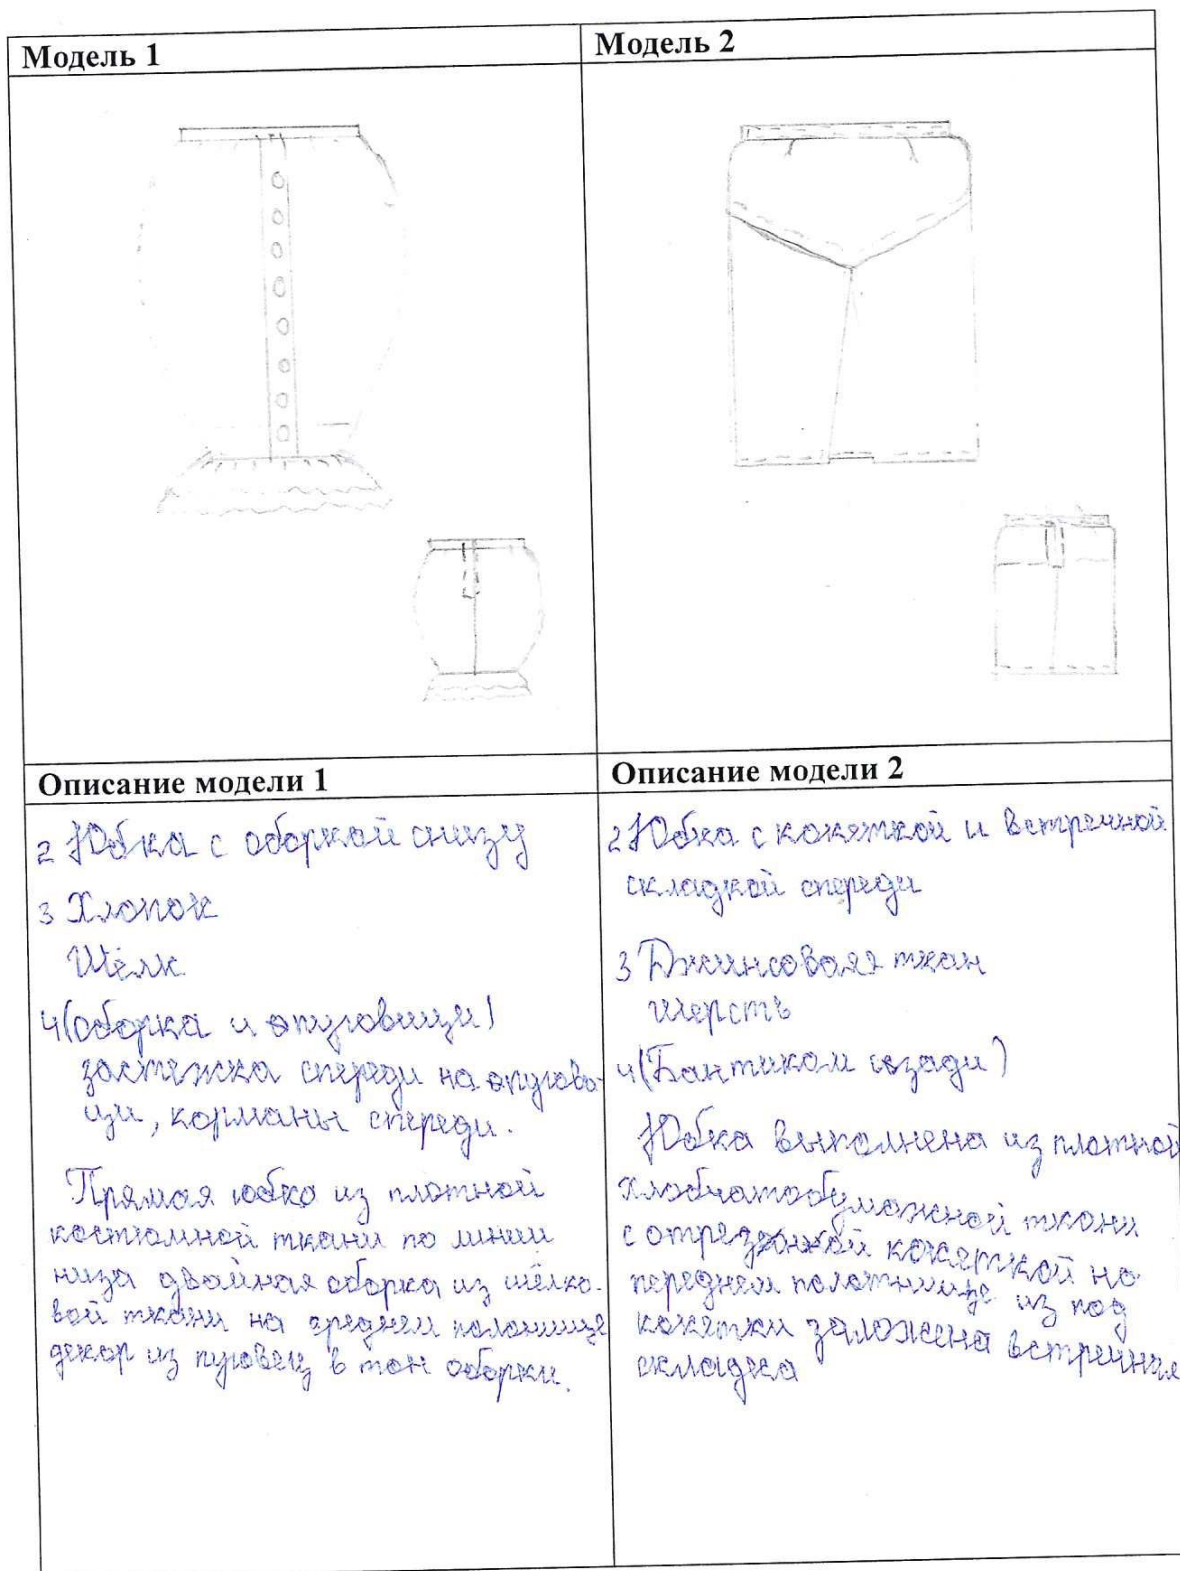 Модель 1
Модель 2
Описание модели 1
2 Юбка с оборкой снизу
3 Хлопок
Шёлк
4(оборка и опуговици)
застежка спереди на опугови-
ци, корманы спереди.
Прямая юбка из плотной
костюмной ткани по линии
низа двойная оборка из шёлко-
вой ткани на среднем полотнище
декор из пуговец в тон оборки.
Описание модели 2
2 Юбка с кокеткой и встречной
складкой спереди
3 Джинсовая ткан
шерсть
4(Бантиком сзади)
Юбка выполнена из плотной
хлобчатобумажной ткани
с отрезной кокеткой на
переднем полотнище из под
кокетки заложена встречная
складка